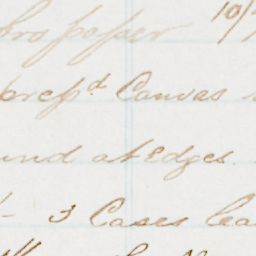 bro paper 10/
prepd Canvas
und at Edges
3 Cases lea